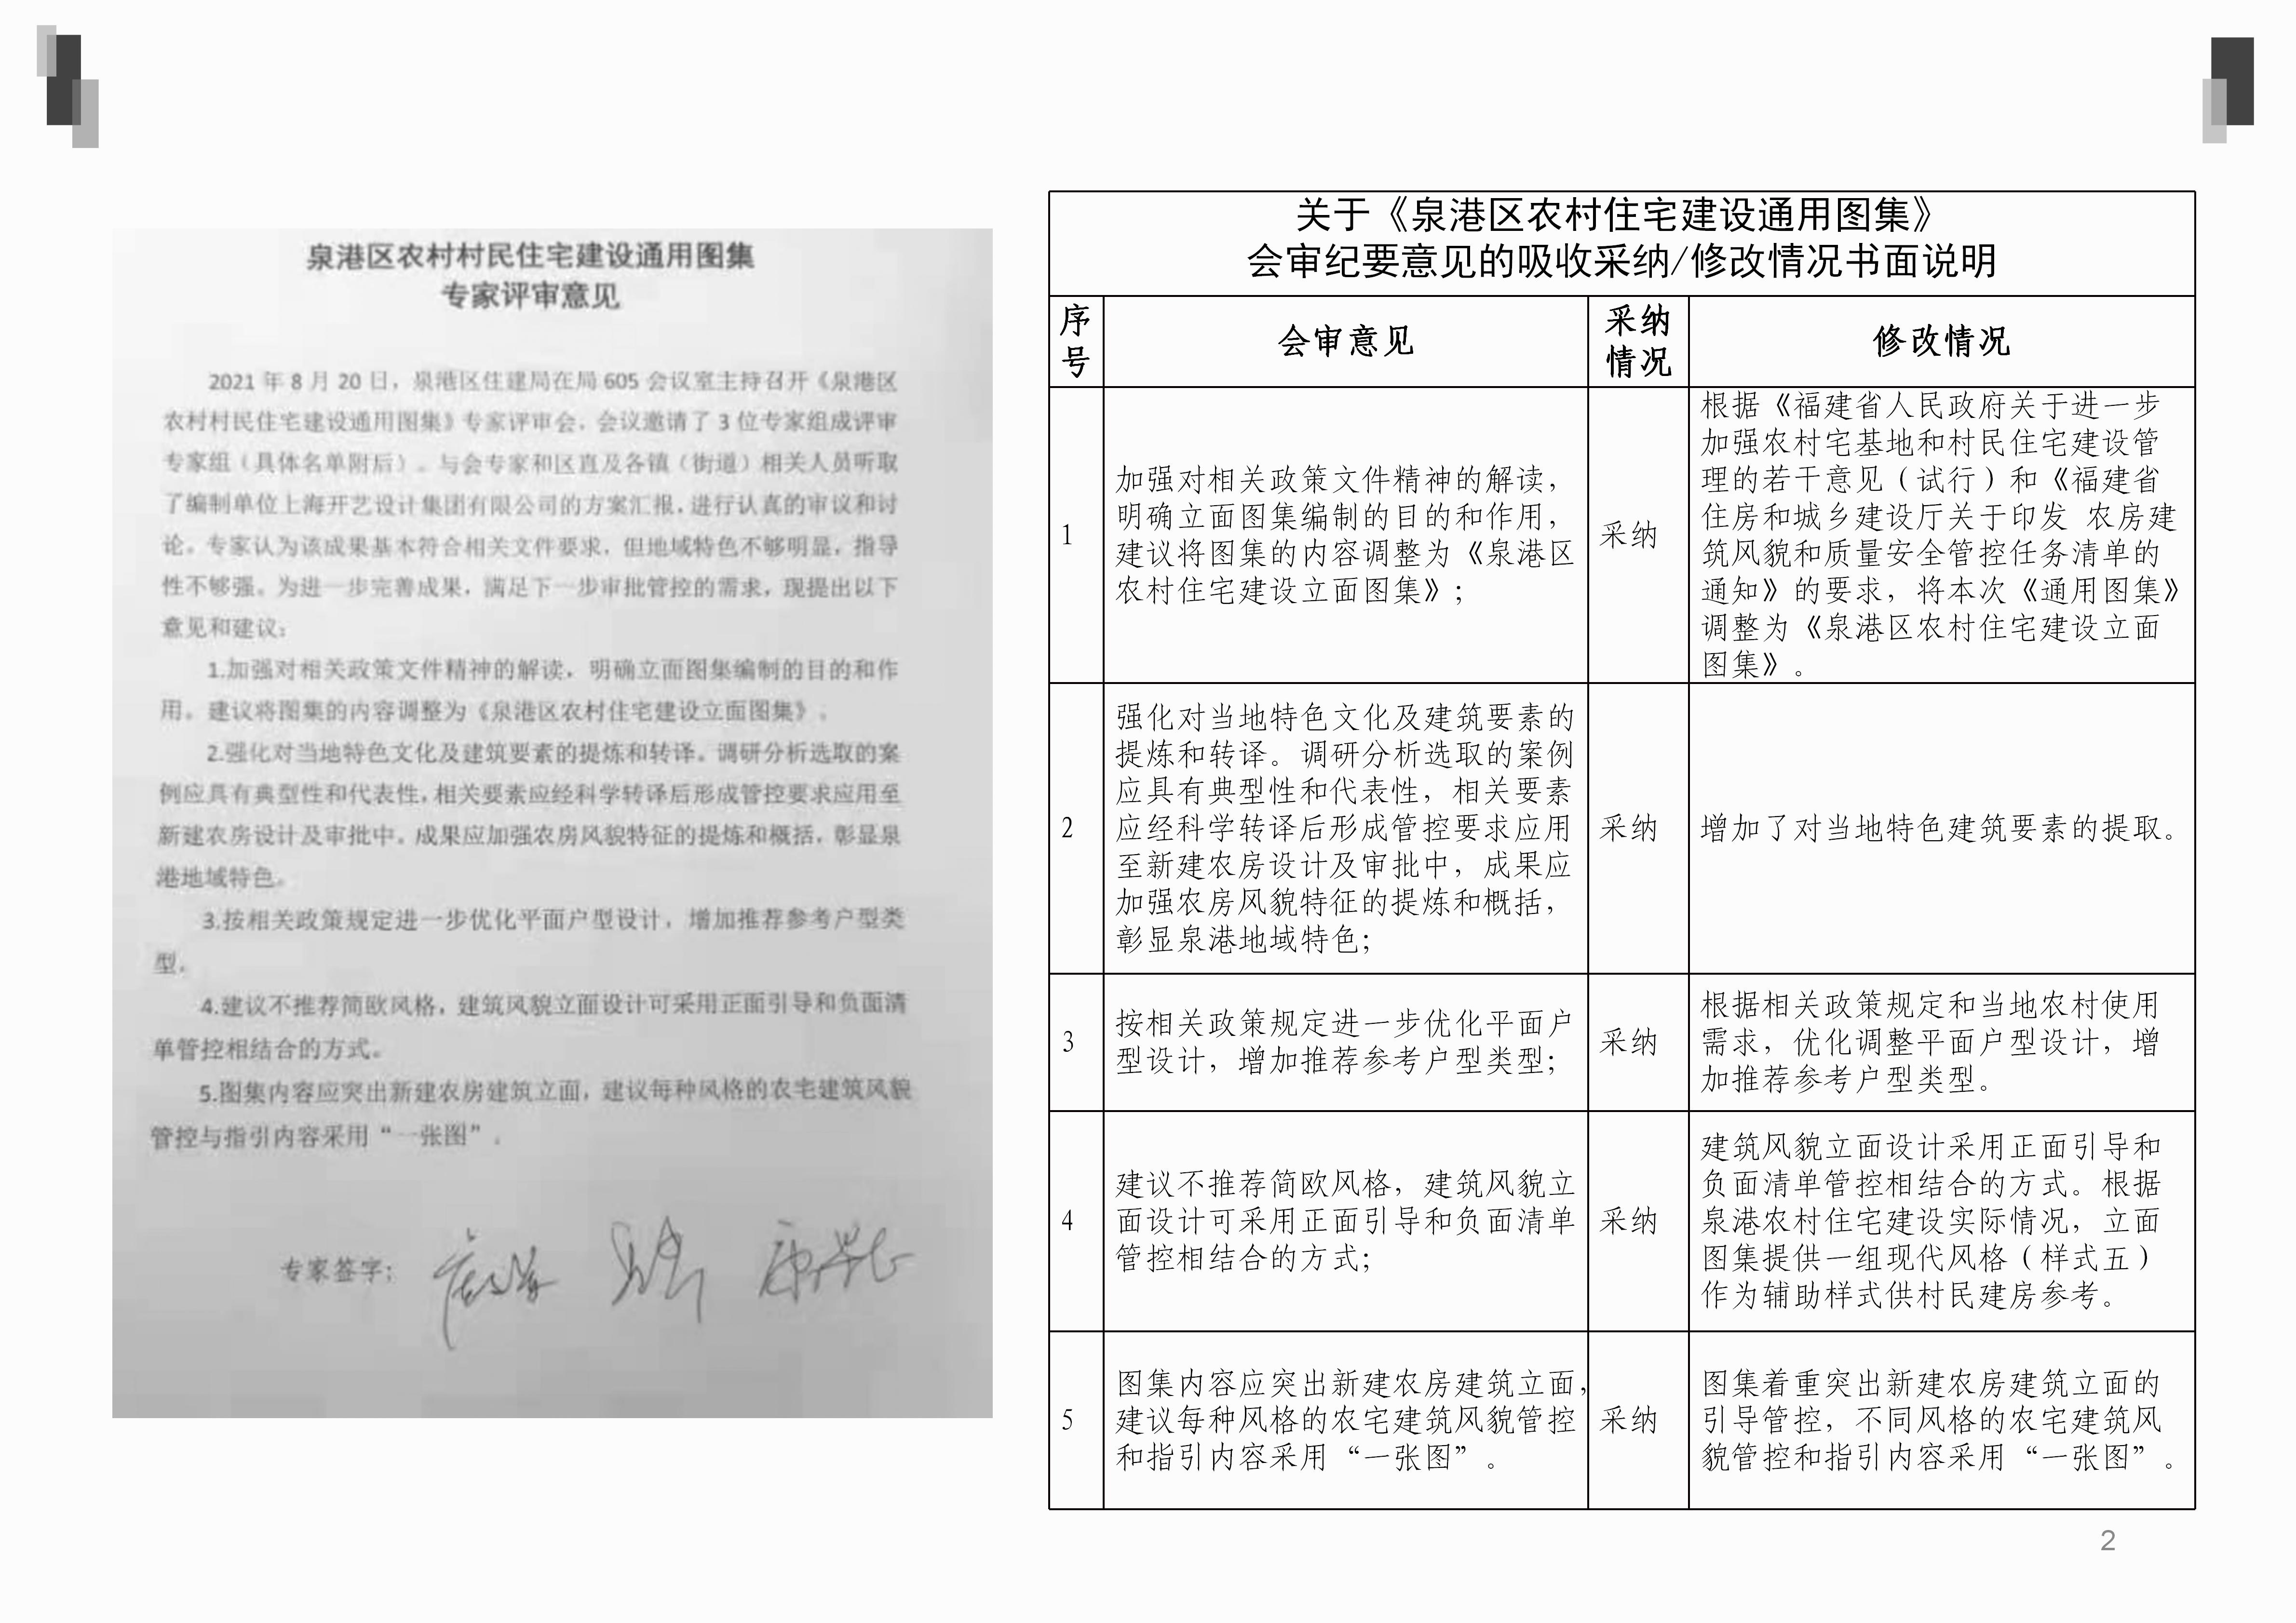 泉港区农村村民住宅建设通用图集
专家评审意见
2021 年 8 月 20 日，泉港区住建局在局 605 会议室主持召开《泉港区
农村村民住宅建设通用图集》专家评审会，会议邀请了 3 位专家组成评审
专家组（具体名单附后）。与会专家和区直及各镇（街道）相关人员听取
了编制单位上海开艺设计集团有限公司的方案汇报，进行认真的审议和讨
论。专家认为该成果基本符合相关文件要求，但地域特色不够明显，指导
性不够强。为进一步完善成果，满足下一步审批管控的需求，现提出以下
意见和建议：
1.加强对相关政策文件精神的解读，明确立面图集编制的目的和作
用。建议将图集的内容调整为《泉港区农村住宅建设立面图集》。
2.强化对当地特色文化及建筑要素的提炼和转译。调研分析选取的案
例应具有典型性和代表性，相关要素应经科学转译后形成管控要求应用至
新建农房设计及审批中。成果应加强农房风貌特征的提炼和概括，彰显泉
港地域特色。
3.按相关政策规定进一步优化平面户型设计，增加推荐参考户型类
型。
4.建议不推荐简欧风格，建筑风貌立面设计可采用正面引导和负面清
单管控相结合的方式。
5.图集内容应突出新建农房建筑立面，建议每种风格的农宅建筑风貌
管控与指引内容采用“一张图”。
专家签字：
关于《泉港区农村住宅建设通用图集》
会审纪要意见的吸收采纳/修改情况书面说明
序
号
会审意见
采纳
情况
修改情况
1
加强对相关政策文件精神的解读，
明确立面图集编制的目的和作用，
建议将图集的内容调整为《泉港区
农村住宅建设立面图集》；
采纳
根据《福建省人民政府关于进一步
加强农村宅基地和村民住宅建设管
理的若干意见（试行）和《福建省
住房和城乡建设厅关于印发 农房建
筑风貌和质量安全管控任务清单的
通知》的要求，将本次《通用图集》
调整为《泉港区农村住宅建设立面
图集》。
2
强化对当地特色文化及建筑要素的
提炼和转译。调研分析选取的案例
应具有典型性和代表性，相关要素
应经科学转译后形成管控要求应用
至新建农房设计及审批中，成果应
加强农房风貌特征的提炼和概括，
彰显泉港地域特色；
采纳
增加了对当地特色建筑要素的提取。
3
按相关政策规定进一步优化平面户
型设计，增加推荐参考户型类型；
采纳
根据相关政策规定和当地农村使用
需求，优化调整平面户型设计，增
加推荐参考户型类型。
4
建议不推荐简欧风格，建筑风貌立
面设计可采用正面引导和负面清单
管控相结合的方式；
采纳
建筑风貌立面设计采用正面引导和
负面清单管控相结合的方式。根据
泉港农村住宅建设实际情况，立面
图集提供一组现代风格（样式五）
作为辅助样式供村民建房参考。
5
图集内容应突出新建农房建筑立面，
建议每种风格的农宅建筑风貌管控
和指引内容采用“一张图”。
采纳
图集着重突出新建农房建筑立面的
引导管控，不同风格的农宅建筑风
貌管控和指引内容采用“一张图”。
2